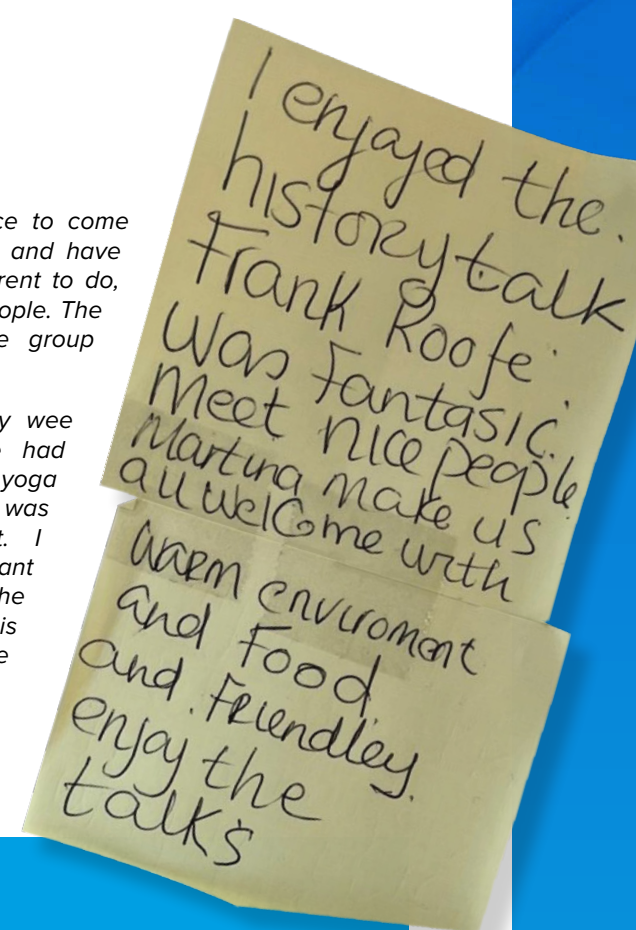 ce to come
and have
rent to do,
ople. The
e group
y wee
e had
yoga
was
t. I
ant
he
is
e
I enjoyed the.
history talk
Frank Roofe.
was Fantasic.
Meet nice people
Martina make us
all welcome with
warm enviroment
and Food
and. Friendley.
enjoy the
talks